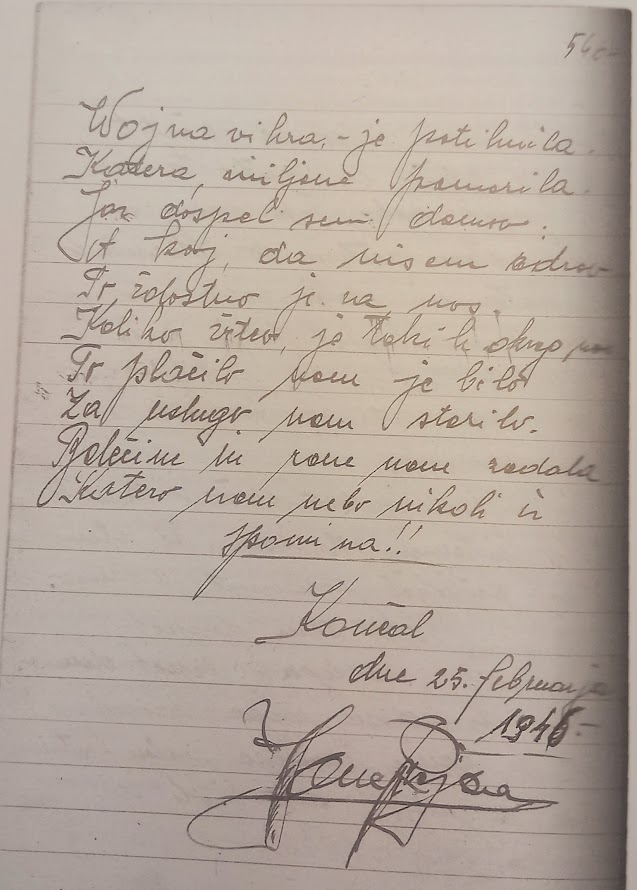 Wojna vihra, - je potihnila.
Katera, miljone pomorila.
Jaz dospel sem domov.
A kaj, da nisem zdrav
To žalostno je za nas.
Koliko žrtev, je takih okrog
To plačilo nam je bilo
Za uslugo nam storilo.
Bolečine in rane nam zadala
Katero nam nebo nikoli iz
spomina!!
Končal
dne 25. februarja
1946-